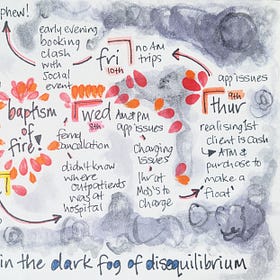 phew!
early evening
booking
clash
with
social
event
fri
10th
no AM
trips
app issues
9th
thur
realising 1st
client is cash
→ ATM &
purchase to
make a
'float'
baptism
of
fire!
wed
8th
AM & PM
app issues
ferry
cancellation
didn't know
where
outpatients
was at
hospital
Charging
issues
1hr at
to charge
in the dark fog of disequilibrium